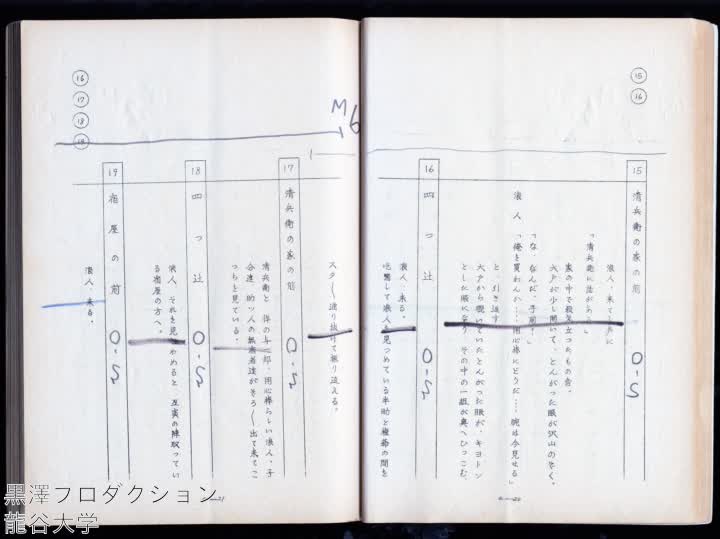 ⑮
⑯
15 清兵衛の家の前 O-S
浪人、来て大戸に
「清兵衛に話がある」
家の中で殺気立ったもの音。
大戸が少し開いて、とんがった眼が沢山のぞく。
「な、なんだ、手前！」
浪人「俺を買わんか……用心棒にどうだ……腕は今見せる」
と、引き返す。
大戸から覗いていたとんがった眼が、キョトン
とした眼になり、その中の一組が奥へひっこむ。
16 四つ辻 O-S
浪人、来る。
吃驚して浪人を見つめている半助と
の間を
M6
スタ〱通り抜けて振り返える。
17 清兵衛の家の前 O-S
清兵衛と、倅の与一郎、用心棒らしい浪人、子
分達、助ッ人の無宿者達がぞろ〱出て来てこ
っちを見ている。
18 四つ辻 O-S
浪人、それを見きわめると、丑寅の陣取ってい
る宿屋の方へ。
19 宿屋の前 O-S
浪人、来る。
⑯
⑰
⑱
⑲
黒澤プロダクション
龍谷大学